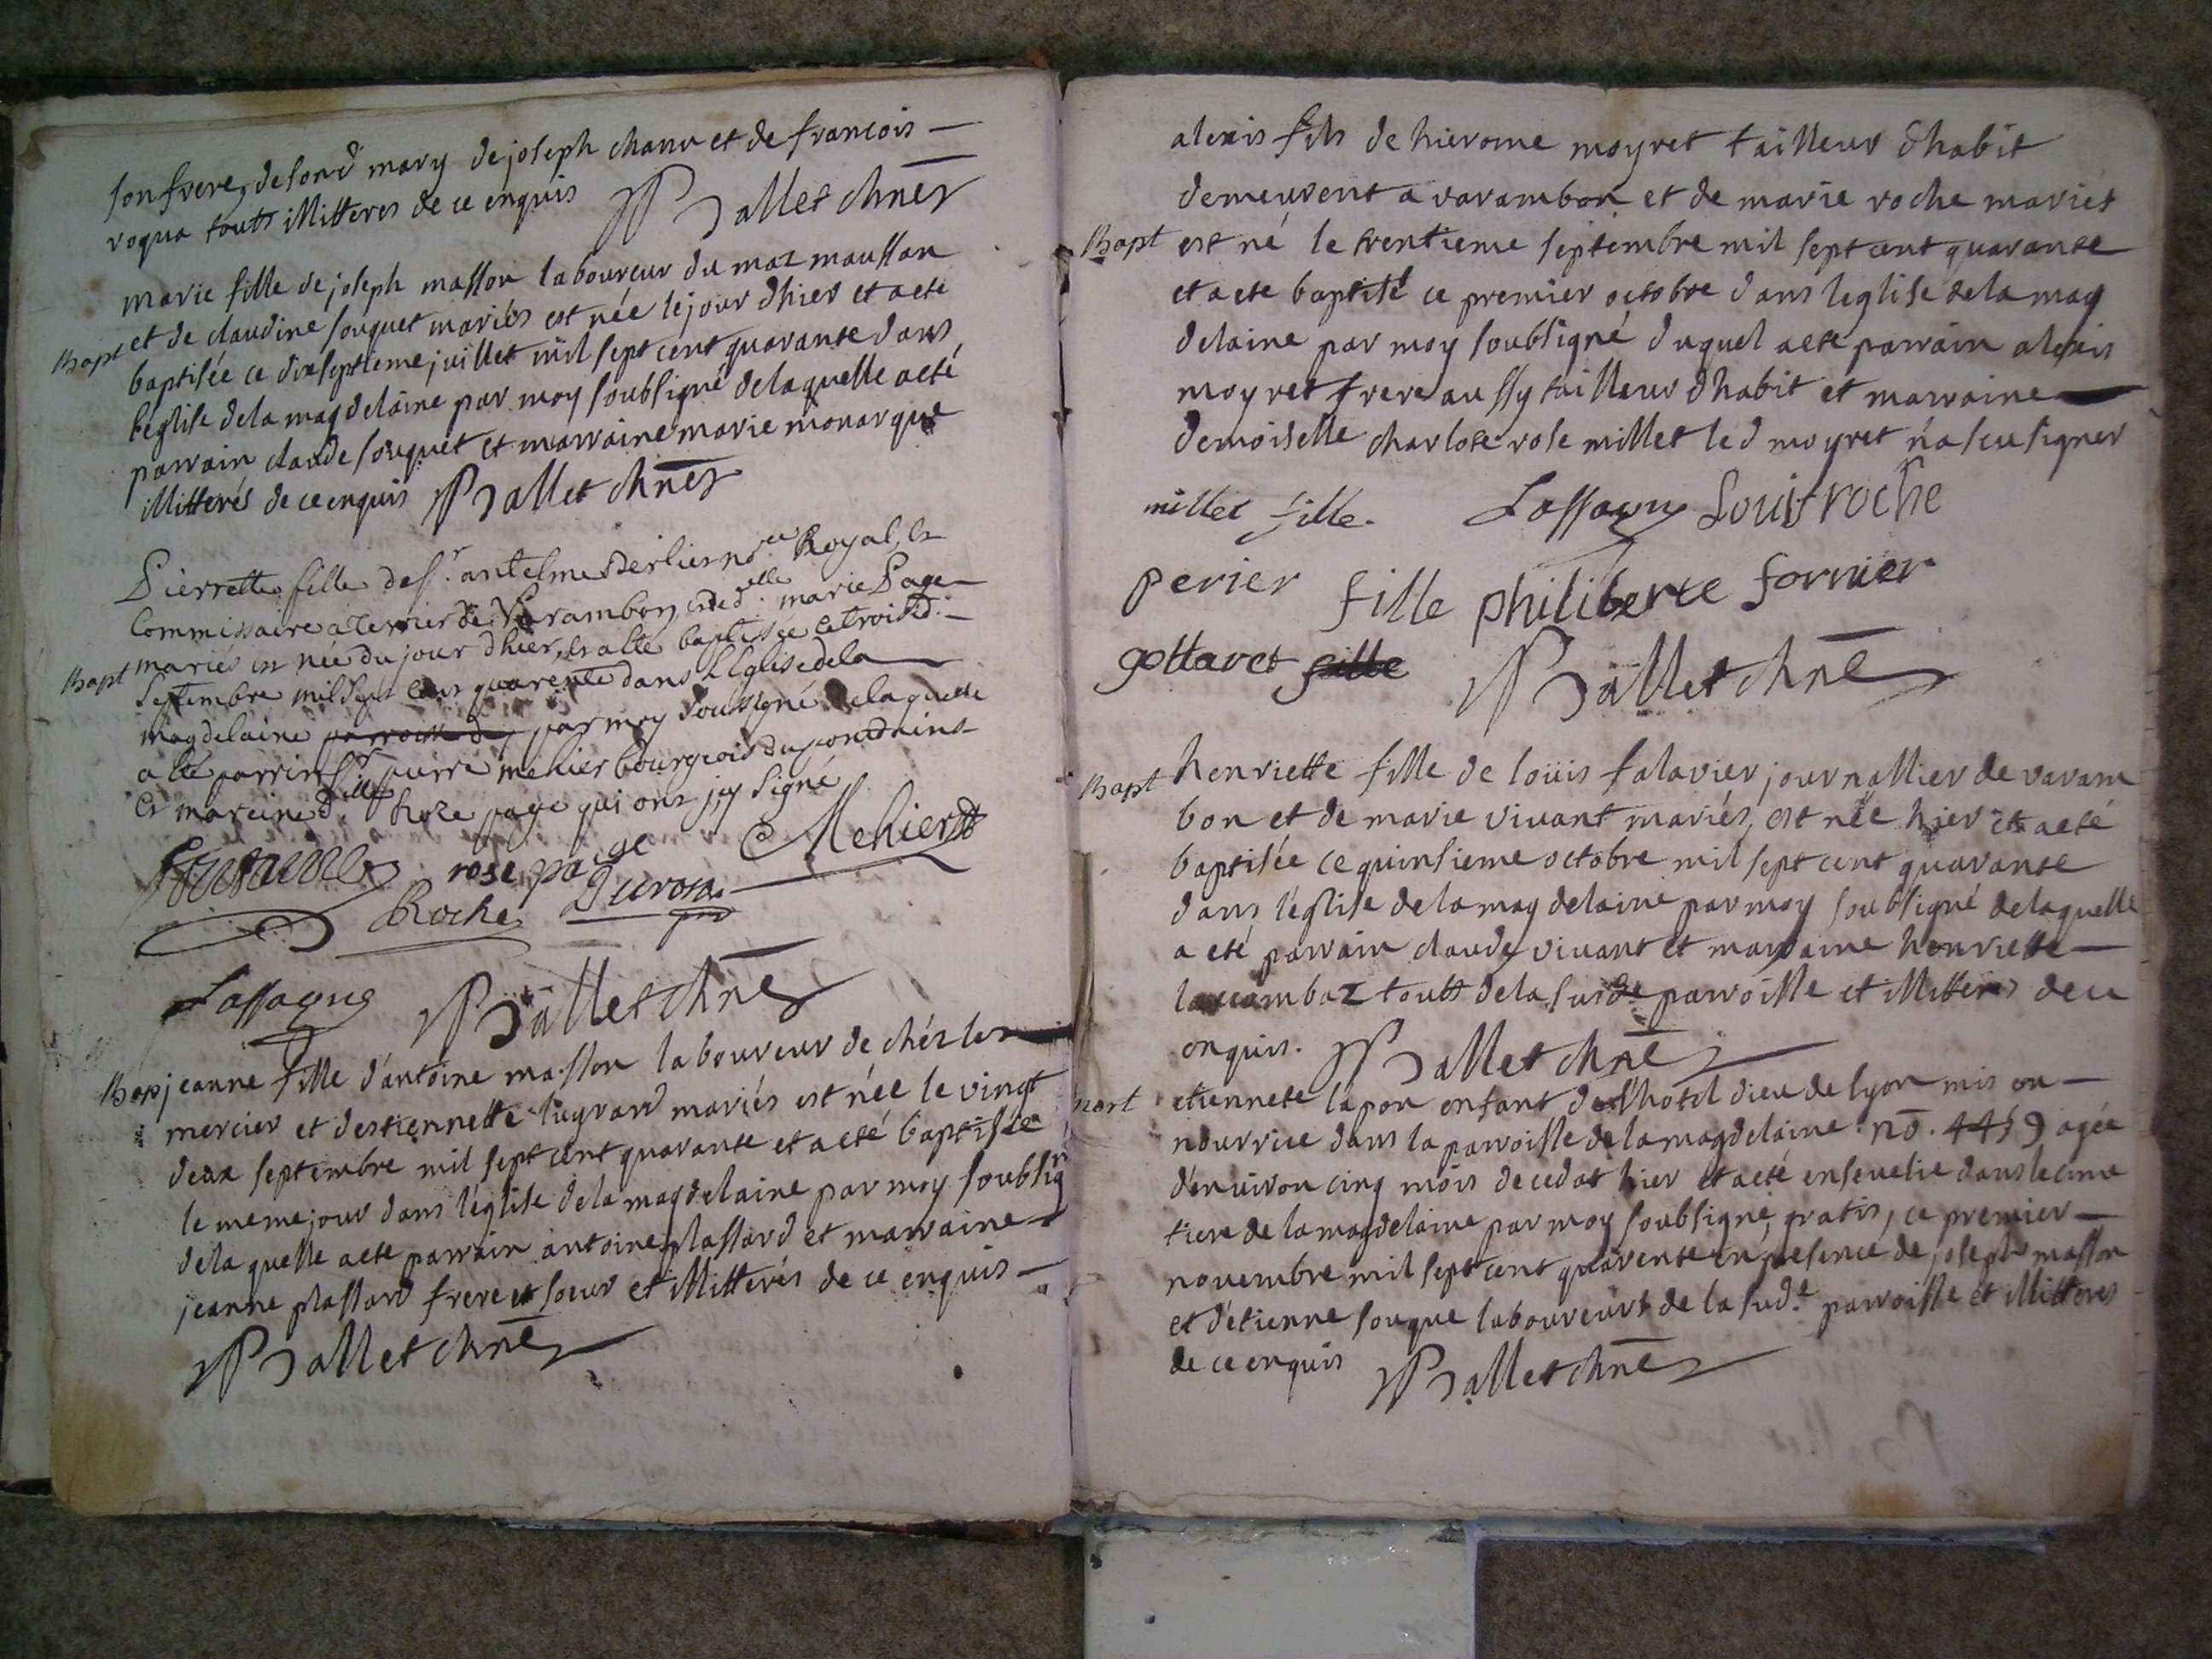 son frere, de son d mary de joseph chanu et de francois
roqua touts illitteres de ce enquis Ballet chnez
marie fille de joseph masson laboureur du maz mausson
Bapt et de claudine souquet mariés est née le jour dhier et a eté
baptisée ce dixseptieme juillet mil sept cent quarante dans
leglise de la magdelaine par moy soubsigné de laquelle a eté
parrain claude souquet et marraine marie monarque
illitterés de ce enquis Ballet chnez
Pierrette fille de sr. antelme nore Royal, et
Commissaire a Terrier de Varambon, et de d.elle marie Page
Bapt mariés est née du jour dhier, et a eté baptisée ce trois
Septembre mil sept cent quarente dans l'Eglise de la
magdelaine par moy soussigné de laquelle
a eté parrin sr pierre mehier bourgeois du pont dains
et mareine d.elle Roze page qui ont jcy signé
rose page Mehier
Roche Durosat
Lassagne Ballet chnez
Bap jeanne fille d'antoine masson laboureur de chéz les
mercier et destiennette lugrand mariés est née le vingt
deux septembre mil sept cent quarante et a eté baptisée
le meme jour dans l'église de la magdelaine par moy soubsign
de la quelle a ete parrain antoine plassard et marraine
jeanne plassard frere et soeur et illitterés de ce enquis
Ballet chnez
alexis fils de hierome moyret tailleur d'habit
demeurent a varambon et de marie roche mariés
Bapt est né le trentieme septembre mil sept cent quarante
et a ete baptisé ce premier octobre dans leglise de la mag
delaine par moy soubsigné duquel a ete parrain alexis
moyret frere aussy tailleur dhabit et marraine
demoiselle charlote rose millet le d moyret n'a sceu signer
millet fille. Lassagne Louis roche
perier fille philiberte fornier
gottaret fille Ballet chnez
Bapt henriette fille de loüis falavier journallier de varam
bon et de marie vivant mariés, est née hier et a eté
baptisée ce quinsieme octobre mil sept cent quarante
dans l'église de la magdelaine par moy soubsigné de laquelle
a eté parrain claude vivant et marraine henriette
lacombaz touts de la susde parroisse et illitterés de ce
enquis. Ballet chnez
mort etiennete lapon enfant de l'hotel dieu de lyon mis en
nourrice dans la parroisse de la magdelaine no. 4459 agée
d'environ cinq mois decedat hier et a eté ensevelie dans le cime
tiere de la magdelaine par moy soubsigné, gratis, ce premier
novembre mil sept cent quarente en presence de joseph masson
et d'etienne souque laboureurs de la sude parroisse et illitteres
de ce enquis Ballet chnez